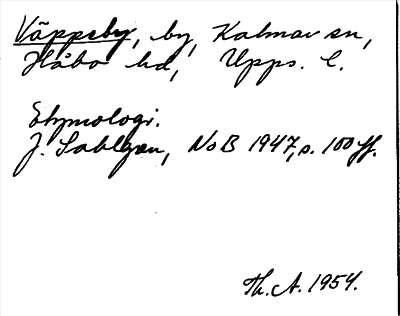 Väppeby, by, Kalmar sn,
Håbo hd, Upps. l.
Etymologi.
J. Sahlgren, NoB 1947, s. 100 ff.
Th. A. 1954.